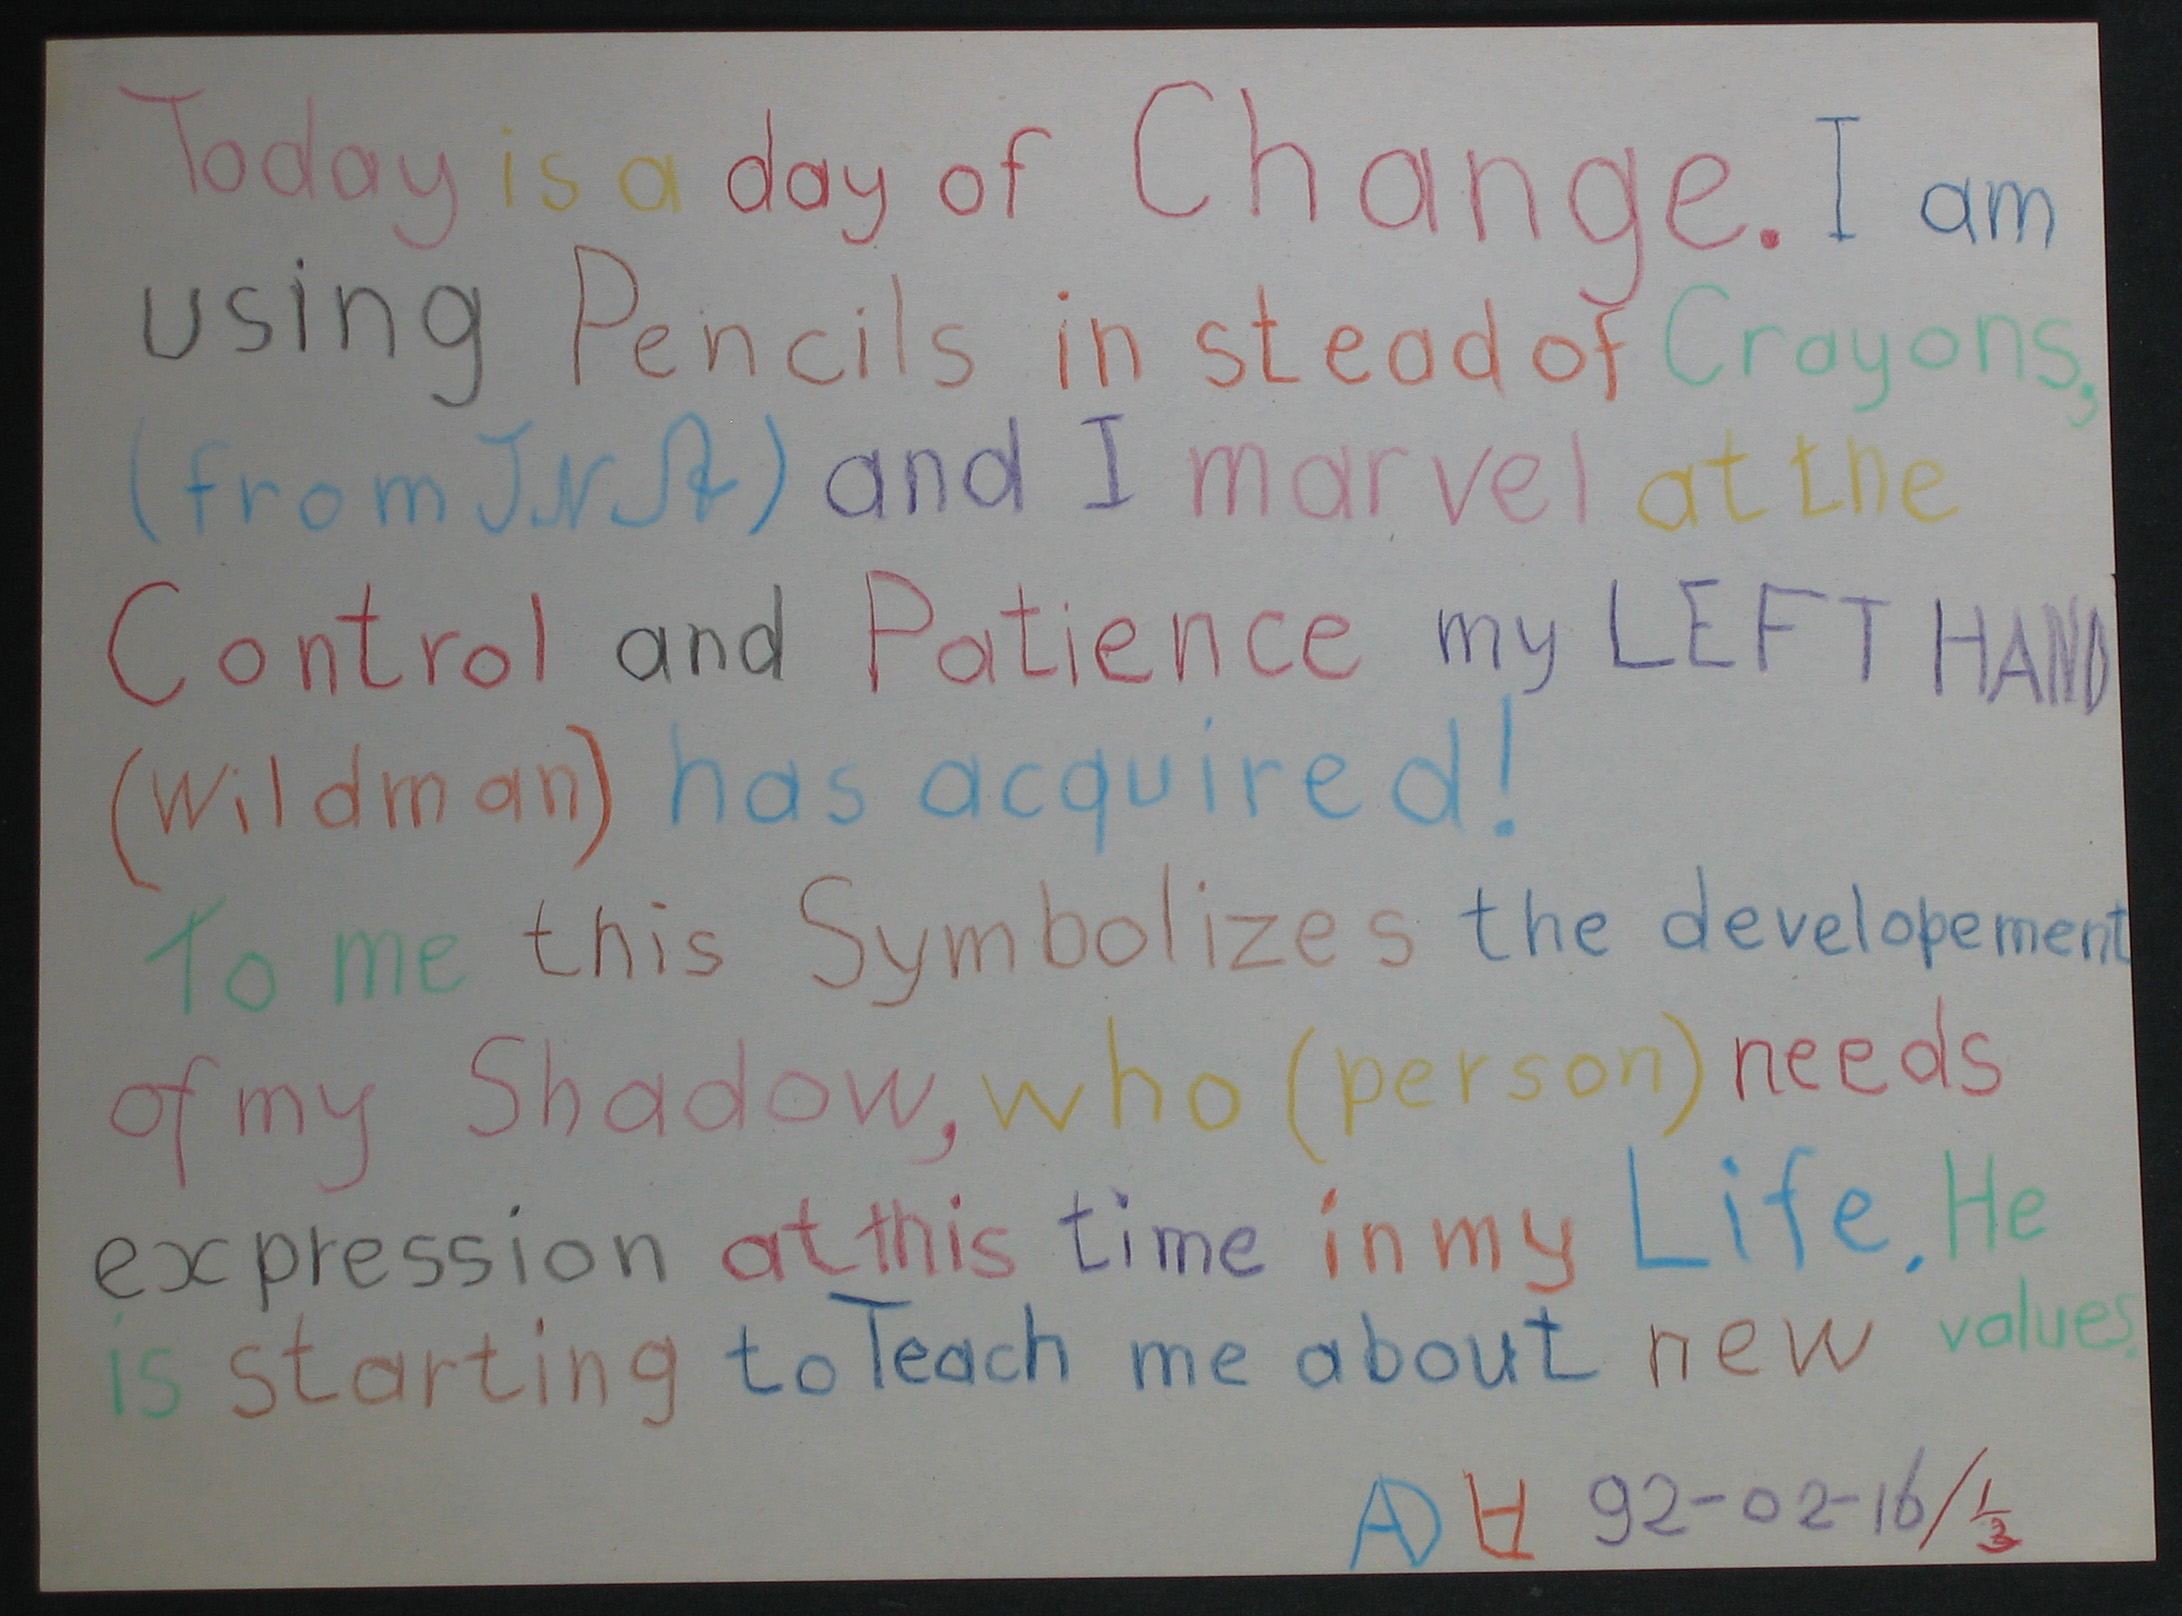 Today is a day of Change. I am
using Pencils in stead of Crayons,
(from and I marvel at the
Control and Patience my LEFT HAND
(Wildman) has acquired!
To me this Symbolizes the developement
of my Shadow, who (person) needs
expression at this time in my Life. He
is starting to Teach me about new values.
92-02-16/1/3